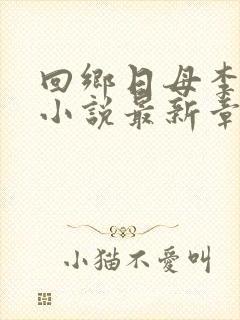 回鄉日母李
小說最新章
小猫不愛叫